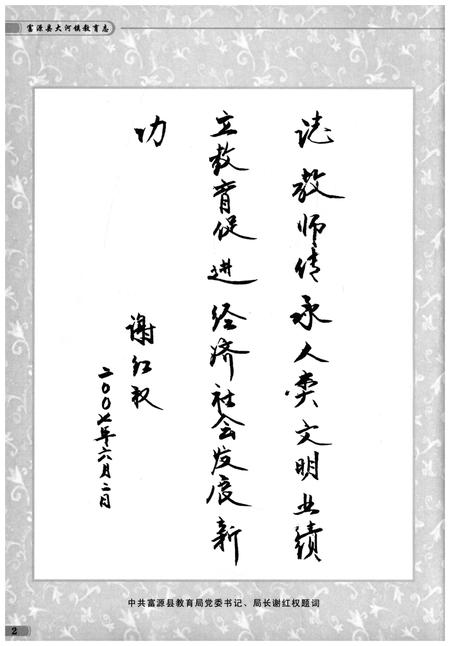 富源县大河镇教育志
志教师情承人类文明业绩
立教育促进经济社会发展新
功
谢红权
二00七年六月二日
中共富源县教育局党委书记、局长谢红权题词
2